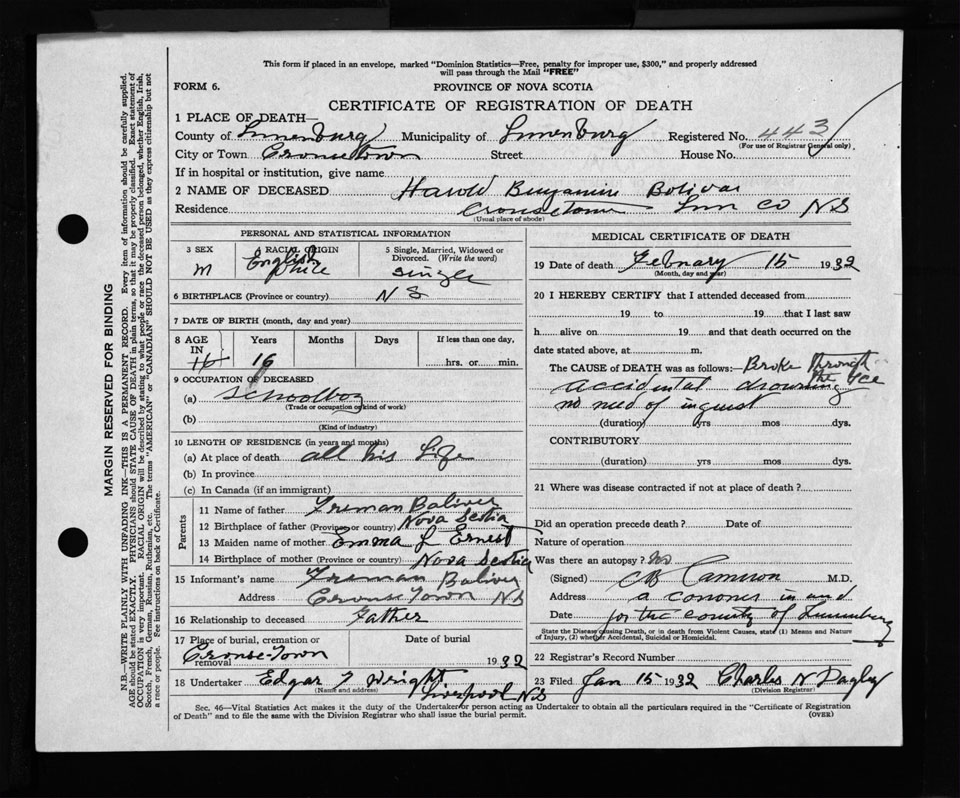 This form if placed in an envelope, marked "Dominion Statistics—Free, penalty for improper use, $300," and properly addressed
will pass through the Mail "FREE"
FORM 6.
PROVINCE OF NOVA SCOTIA
CERTIFICATE OF REGISTRATION OF DEATH
1 PLACE OF DEATH—
County of Lunenburg Municipality of Lunenburg Registered No. 443
(For use of Registrar General only)
City or Town Crousetown Street House No.
If in hospital or institution, give name
2 NAME OF DECEASED Harold Benjamin Bolivar
Residence Crousetown Lun Co N S
(Usual place of abode)
PERSONAL AND STATISTICAL INFORMATION
3 SEX
M
4 RACIAL ORIGIN
English
White
5 Single, Married, Widowed or
Divorced. (Write the word)
single
6 BIRTHPLACE (Province or country) N S
7 DATE OF BIRTH (month, day and year)
8 AGE
IN
16
Years
16
Months
Days
If less than one day,
hrs. or min.
9 OCCUPATION OF DECEASED
(a) Schoolboy
(Trade or occupation or kind of work)
(b)
(Kind of industry)
10 LENGTH OF RESIDENCE (in years and months)
(a) At place of death all his Life
(b) In province
(c) In Canada (if an immigrant)
Parents
11 Name of father Freman Baliver
12 Birthplace of father (Province or country) Nova Scotia
13 Maiden name of mother Emma L Ernest
14 Birthplace of mother (Province or country) Nova Scotia
15 Informant's name Freman Baliver
Address Crouse Town NS
16 Relationship to deceased Father
17 Place of burial, cremation or
removal Crouse-Town
Date of burial
1932
18 Undertaker Edgar T Wright
(Name and address) Liverpool NS
MEDICAL CERTIFICATE OF DEATH
19 Date of death February 15 1932
(Month, day and year)
20 I HEREBY CERTIFY that I attended deceased from
19 to 19 that I last saw
h alive on 19 and that death occurred on the
date stated above, at m.
The CAUSE of DEATH was as follows:- Broke through
the Ice
accidental drowning
no need of inquest
(duration) yrs mos dys.
CONTRIBUTORY
(duration) yrs mos dys.
21 Where was disease contracted if not at place of death?
Did an operation precede death? Date of
Nature of operation
Was there an autopsy? No
(Signed) C B Cameron M.D.
Address a coroner in and
Date for the county of Lunenburg
State the Disease causing Death, or in death from Violent Causes, state (1) Means and Nature
of Injury, (2) whether Accidental, Suicidal or Homicidal.
22 Registrar's Record Number
23 Filed Jan 15 1932 Charles N Dagley
(Division Registrar)
Sec. 46—Vital Statistics Act makes it the duty of the Undertaker or person acting as Undertaker to obtain all the particulars required in the "Certificate of Registration
of Death" and to file the same with the Division Registrar who shall issue the burial permit.
(OVER)
MARGIN RESERVED FOR BINDING
N.B.—WRITE PLAINLY WITH UNFADING INK—THIS IS A PERMANENT RECORD. Every item of information should be carefully supplied.
AGE should be stated EXACTLY. PHYSICIANS should STATE CAUSE OF DEATH in plain terms, so that it may be properly classified. Exact statement of
OCCUPATION is very important. RACIAL ORIGIN will be described by stating to what people or race the deceased person belonged, whether English, Irish,
Scotch, French, German, Russian, Ruthenian, etc. The terms "AMERICAN" or "CANADIAN" SHOULD NOT BE USED as they express citizenship but not
a race or people. See instructions on back of Certificate.